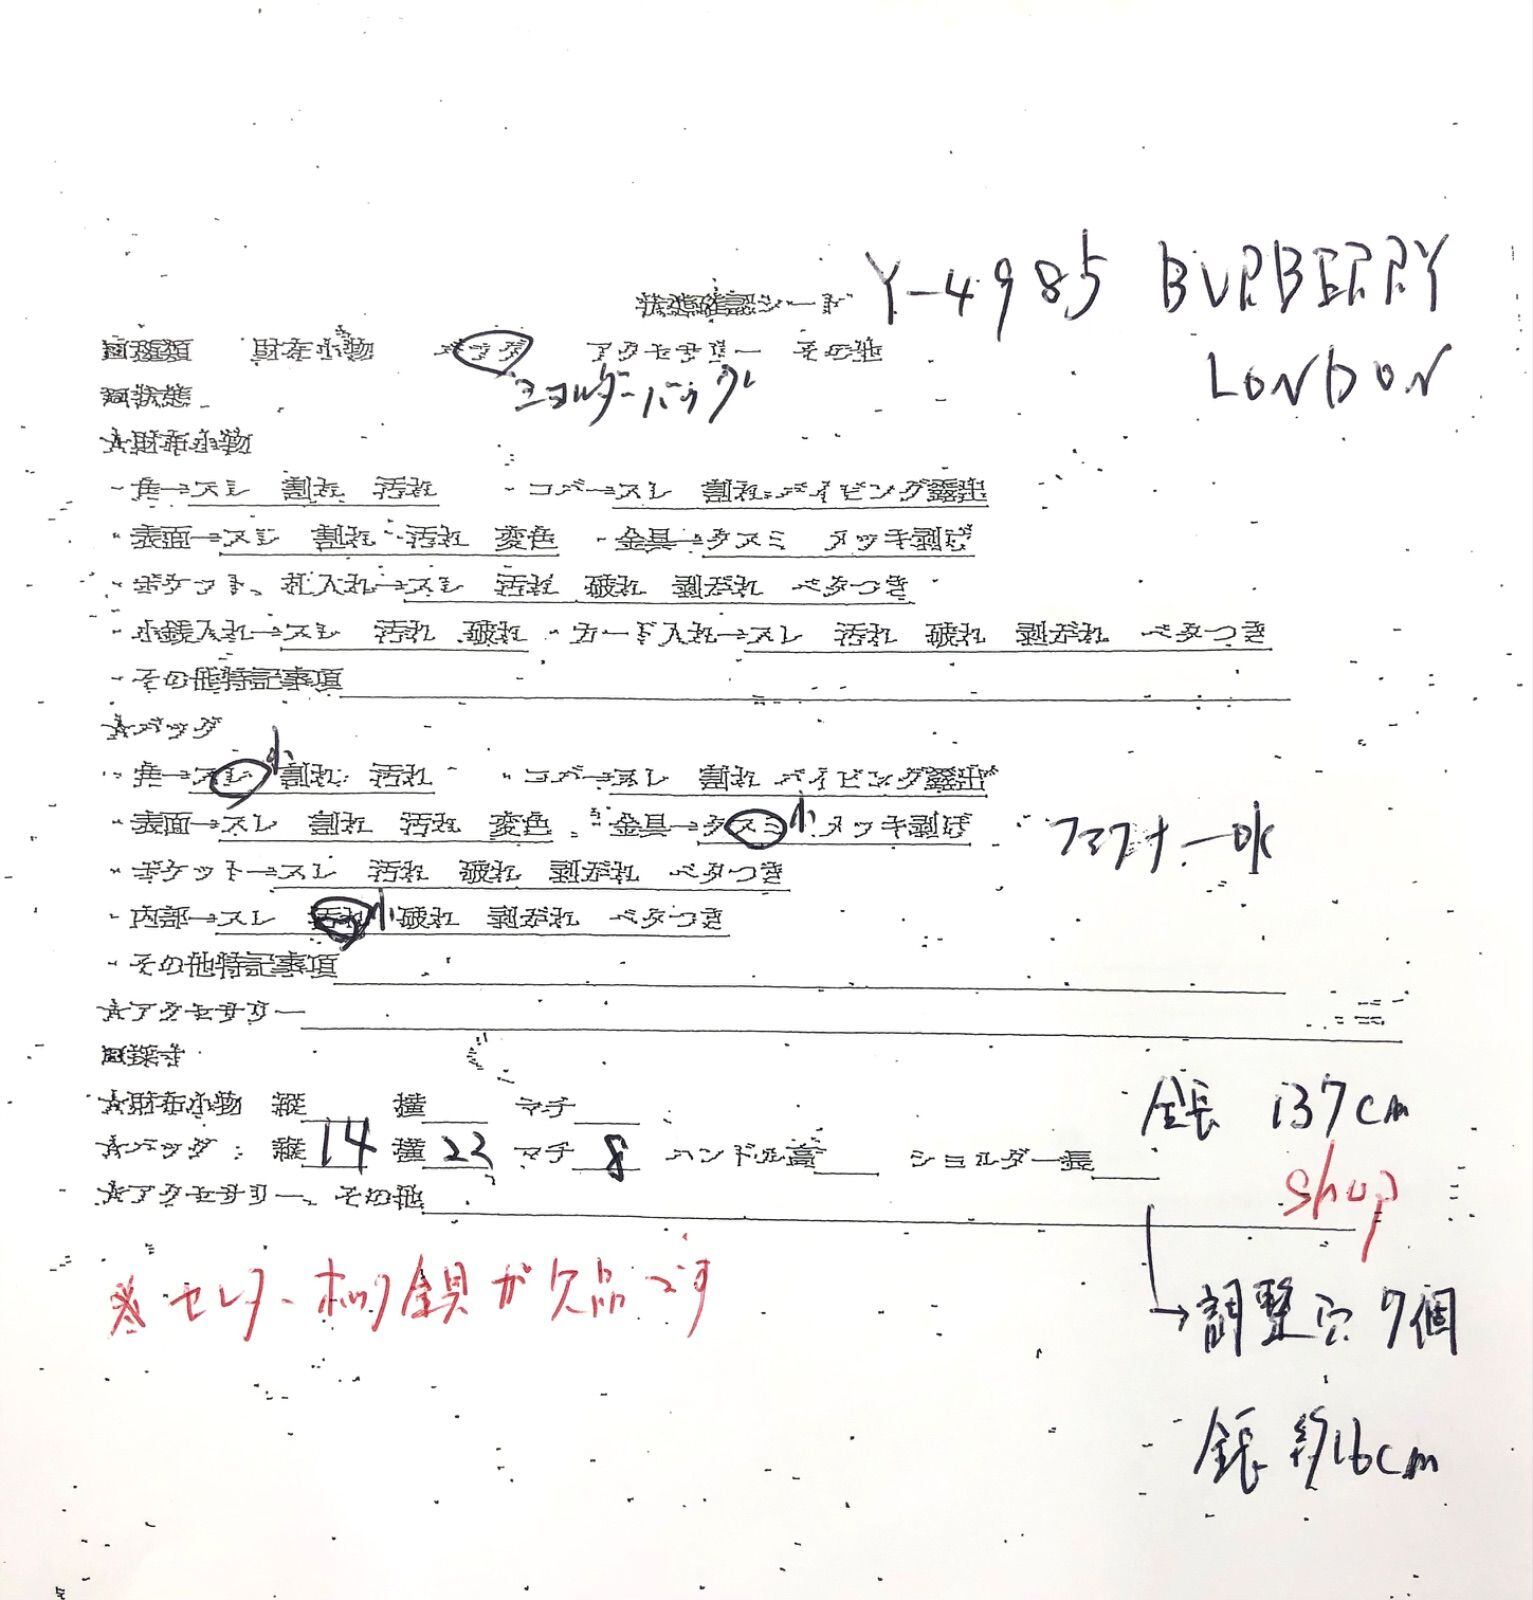 状態確認シート Y-4985 BURBERRY
LONDON
■種類 財布小物 バッグ アクセサリー その他
ショルダーバッグ
■状態
★財布小物
・角→スレ 割れ 汚れ ・コバ→スレ 割れ パイピング露出
・表面→スレ 割れ 汚れ 変色 ・金具→クスミ メッキ剥げ
・ポケット、札入れ→スレ 汚れ 破れ 剥がれ ベタつき
・小銭入れ→スレ 汚れ 破れ ・カード入れ→スレ 汚れ 破れ 剥がれ ベタつき
・その他特記事項
★バッグ
・角→スレ 小 割れ 汚れ ・コバ→スレ 割れ パイピング露出
・表面→スレ 割れ 汚れ 変色 ・金具→クスミ 小 メッキ剥げ ファスナー
・ポケット→スレ 汚れ 破れ 剥がれ ベタつき
・内部→スレ 汚れ 小 破れ 剥がれ ベタつき
・その他特記事項
★アクセサリー
■採寸
★財布小物 縦 横 マチ 全長 137cm
★バッグ : 縦 14 横 23 マチ 8 ハンドル高 ショルダー長
shop
★アクセサリー、その他
※ センターホック金具が欠品です
→調整穴 7個
全長 約16cm